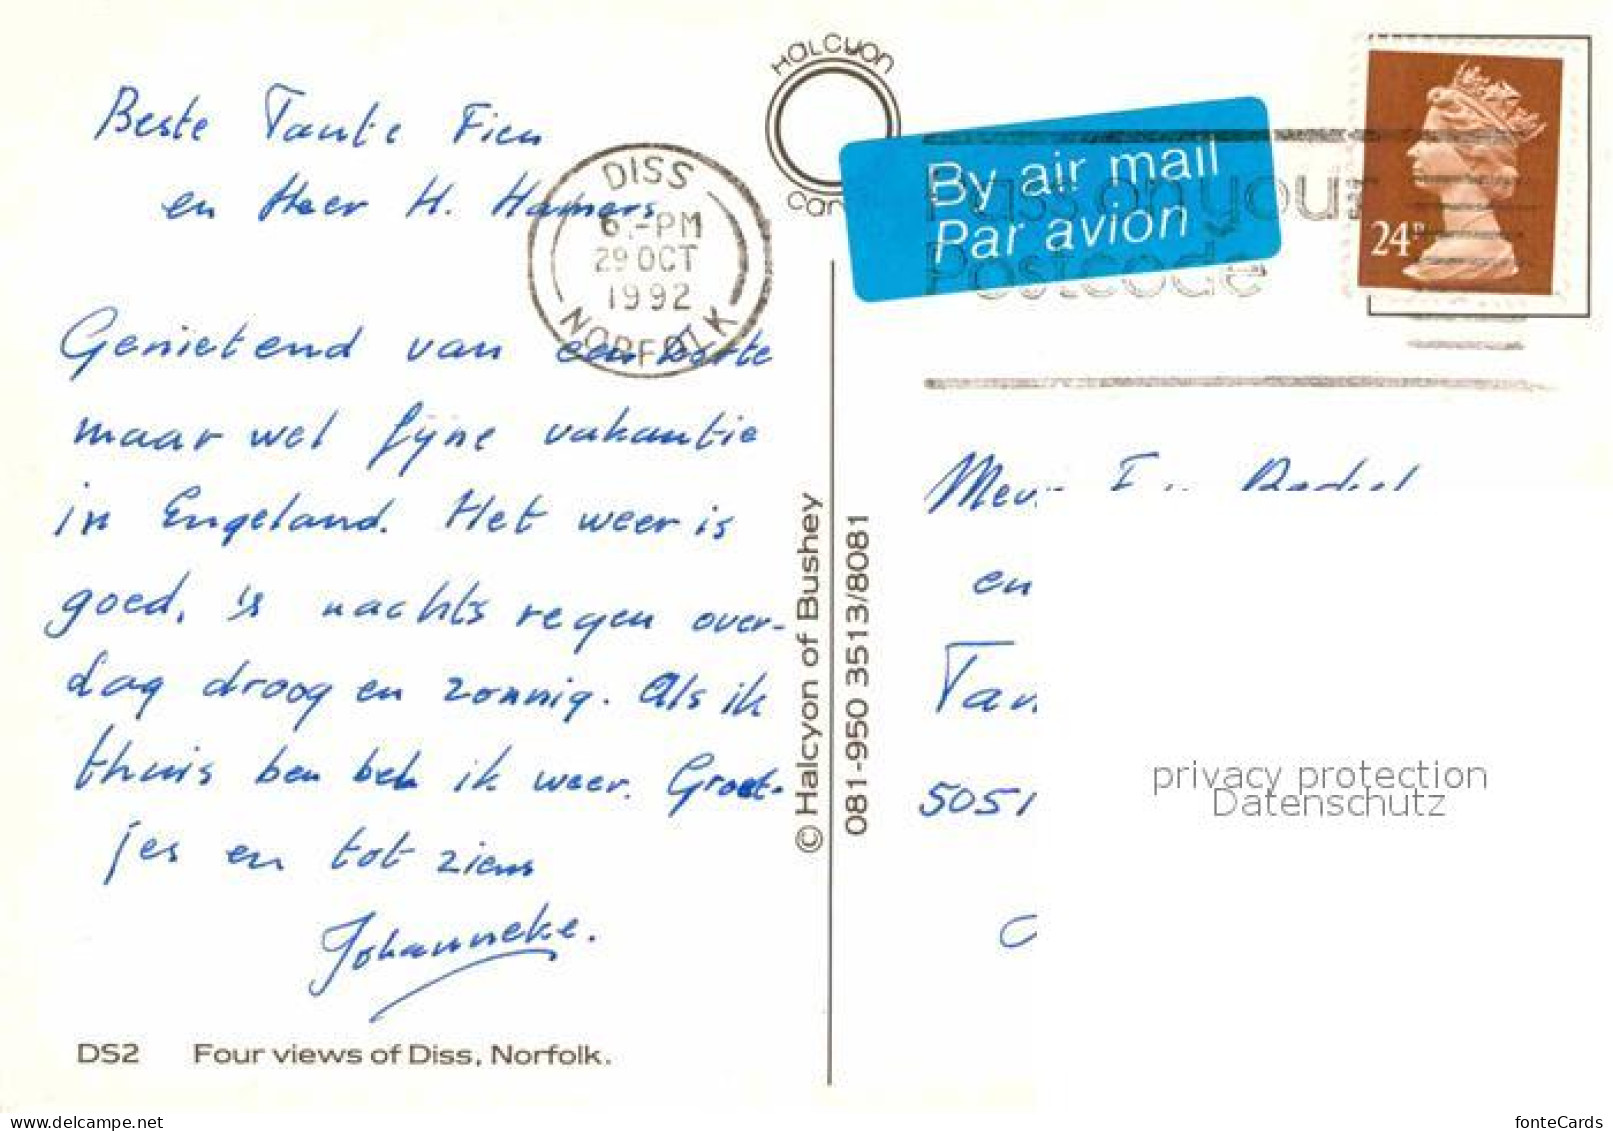 HALCYON
Beste Tante Fien
en Heer H. Hamers
Genietend van een korte
maar wel fijne vakantie
in Engeland. Het weer is
goed, 's nachts regen over-
dag droog en zonnig. Als ik
thuis ben bel ik weer. Groet-
jes en tot ziens
Johanneke.
DS2 Four views of Diss, Norfolk.
DISS
6.-PM
29 OCT
1992
NORFOLK
© Halcyon of Bushey
081-950 3513/8081
By air mail
Par avion
Pass on your
Postcode
24P
en
5051
privacy protection
Datenschutz
www.delcampe.net
fonteCards